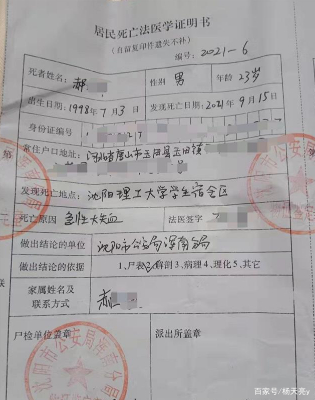 居民死亡法医学证明书
(自留复印件遗失不补)
编号: 2021-6
死者姓名 郝 性别 男 年龄 23岁
出生日期 1998年7月3日 发现死亡日期 2021年9月15日
身份证编号
常住户口地址: 河北省唐山市玉田县玉田镇
发现死亡地点: 沈阳理工大学学生宿舍区
死亡原因 急性大失血 法医签字
做出结论的单位 沈阳市公安局浑南分局
做出结论的依据 1、尸表2、解剖3、病理4、理化5、其它
家属姓名及
联系方式 郝
尸检单位盖章 派出所盖章
沈阳市公安局浑南分局
百家号/杨天亮y